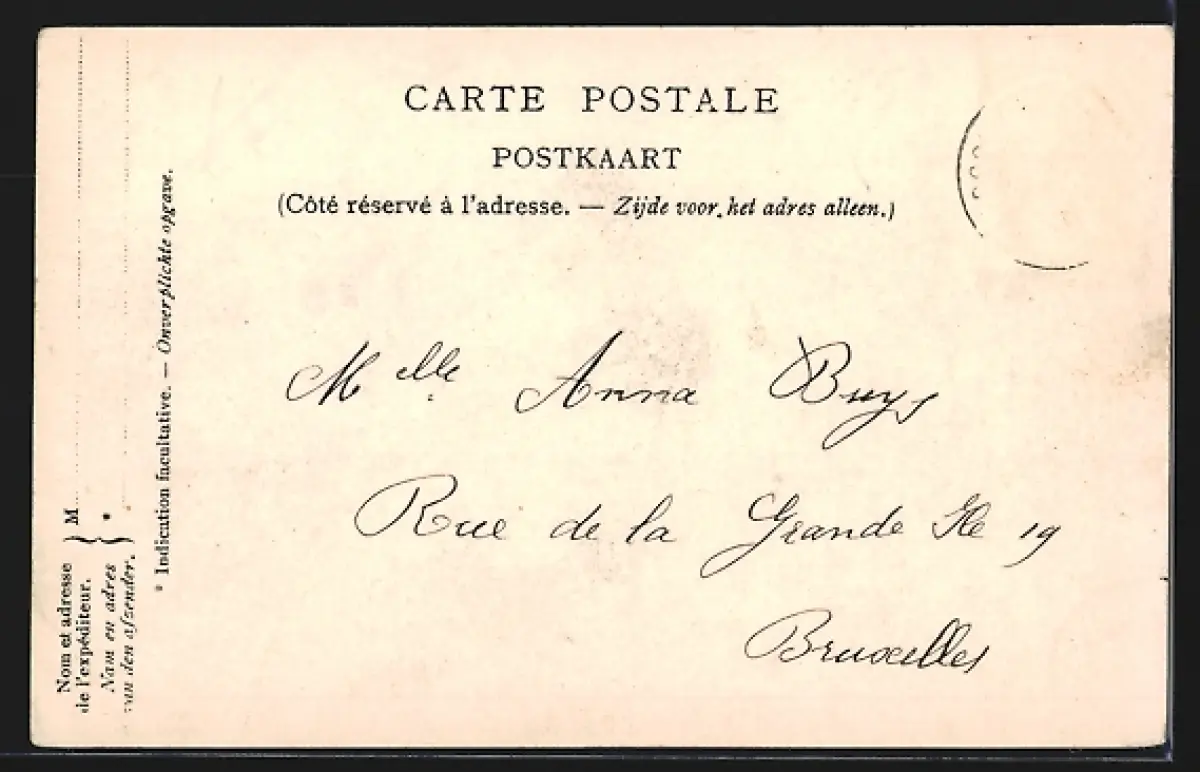 CARTE POSTALE
POSTKAART
(Côté réservé à l'adresse. — Zijde voor het adres alleen.)
Melle Anna Buys
Rue de la Grande Ile 19
Bruxelles
Nom et adresse
de l'expéditeur. } M
Nam en adres
van den afzender. } *
* Indication facultative. — Onverplichte opgave.